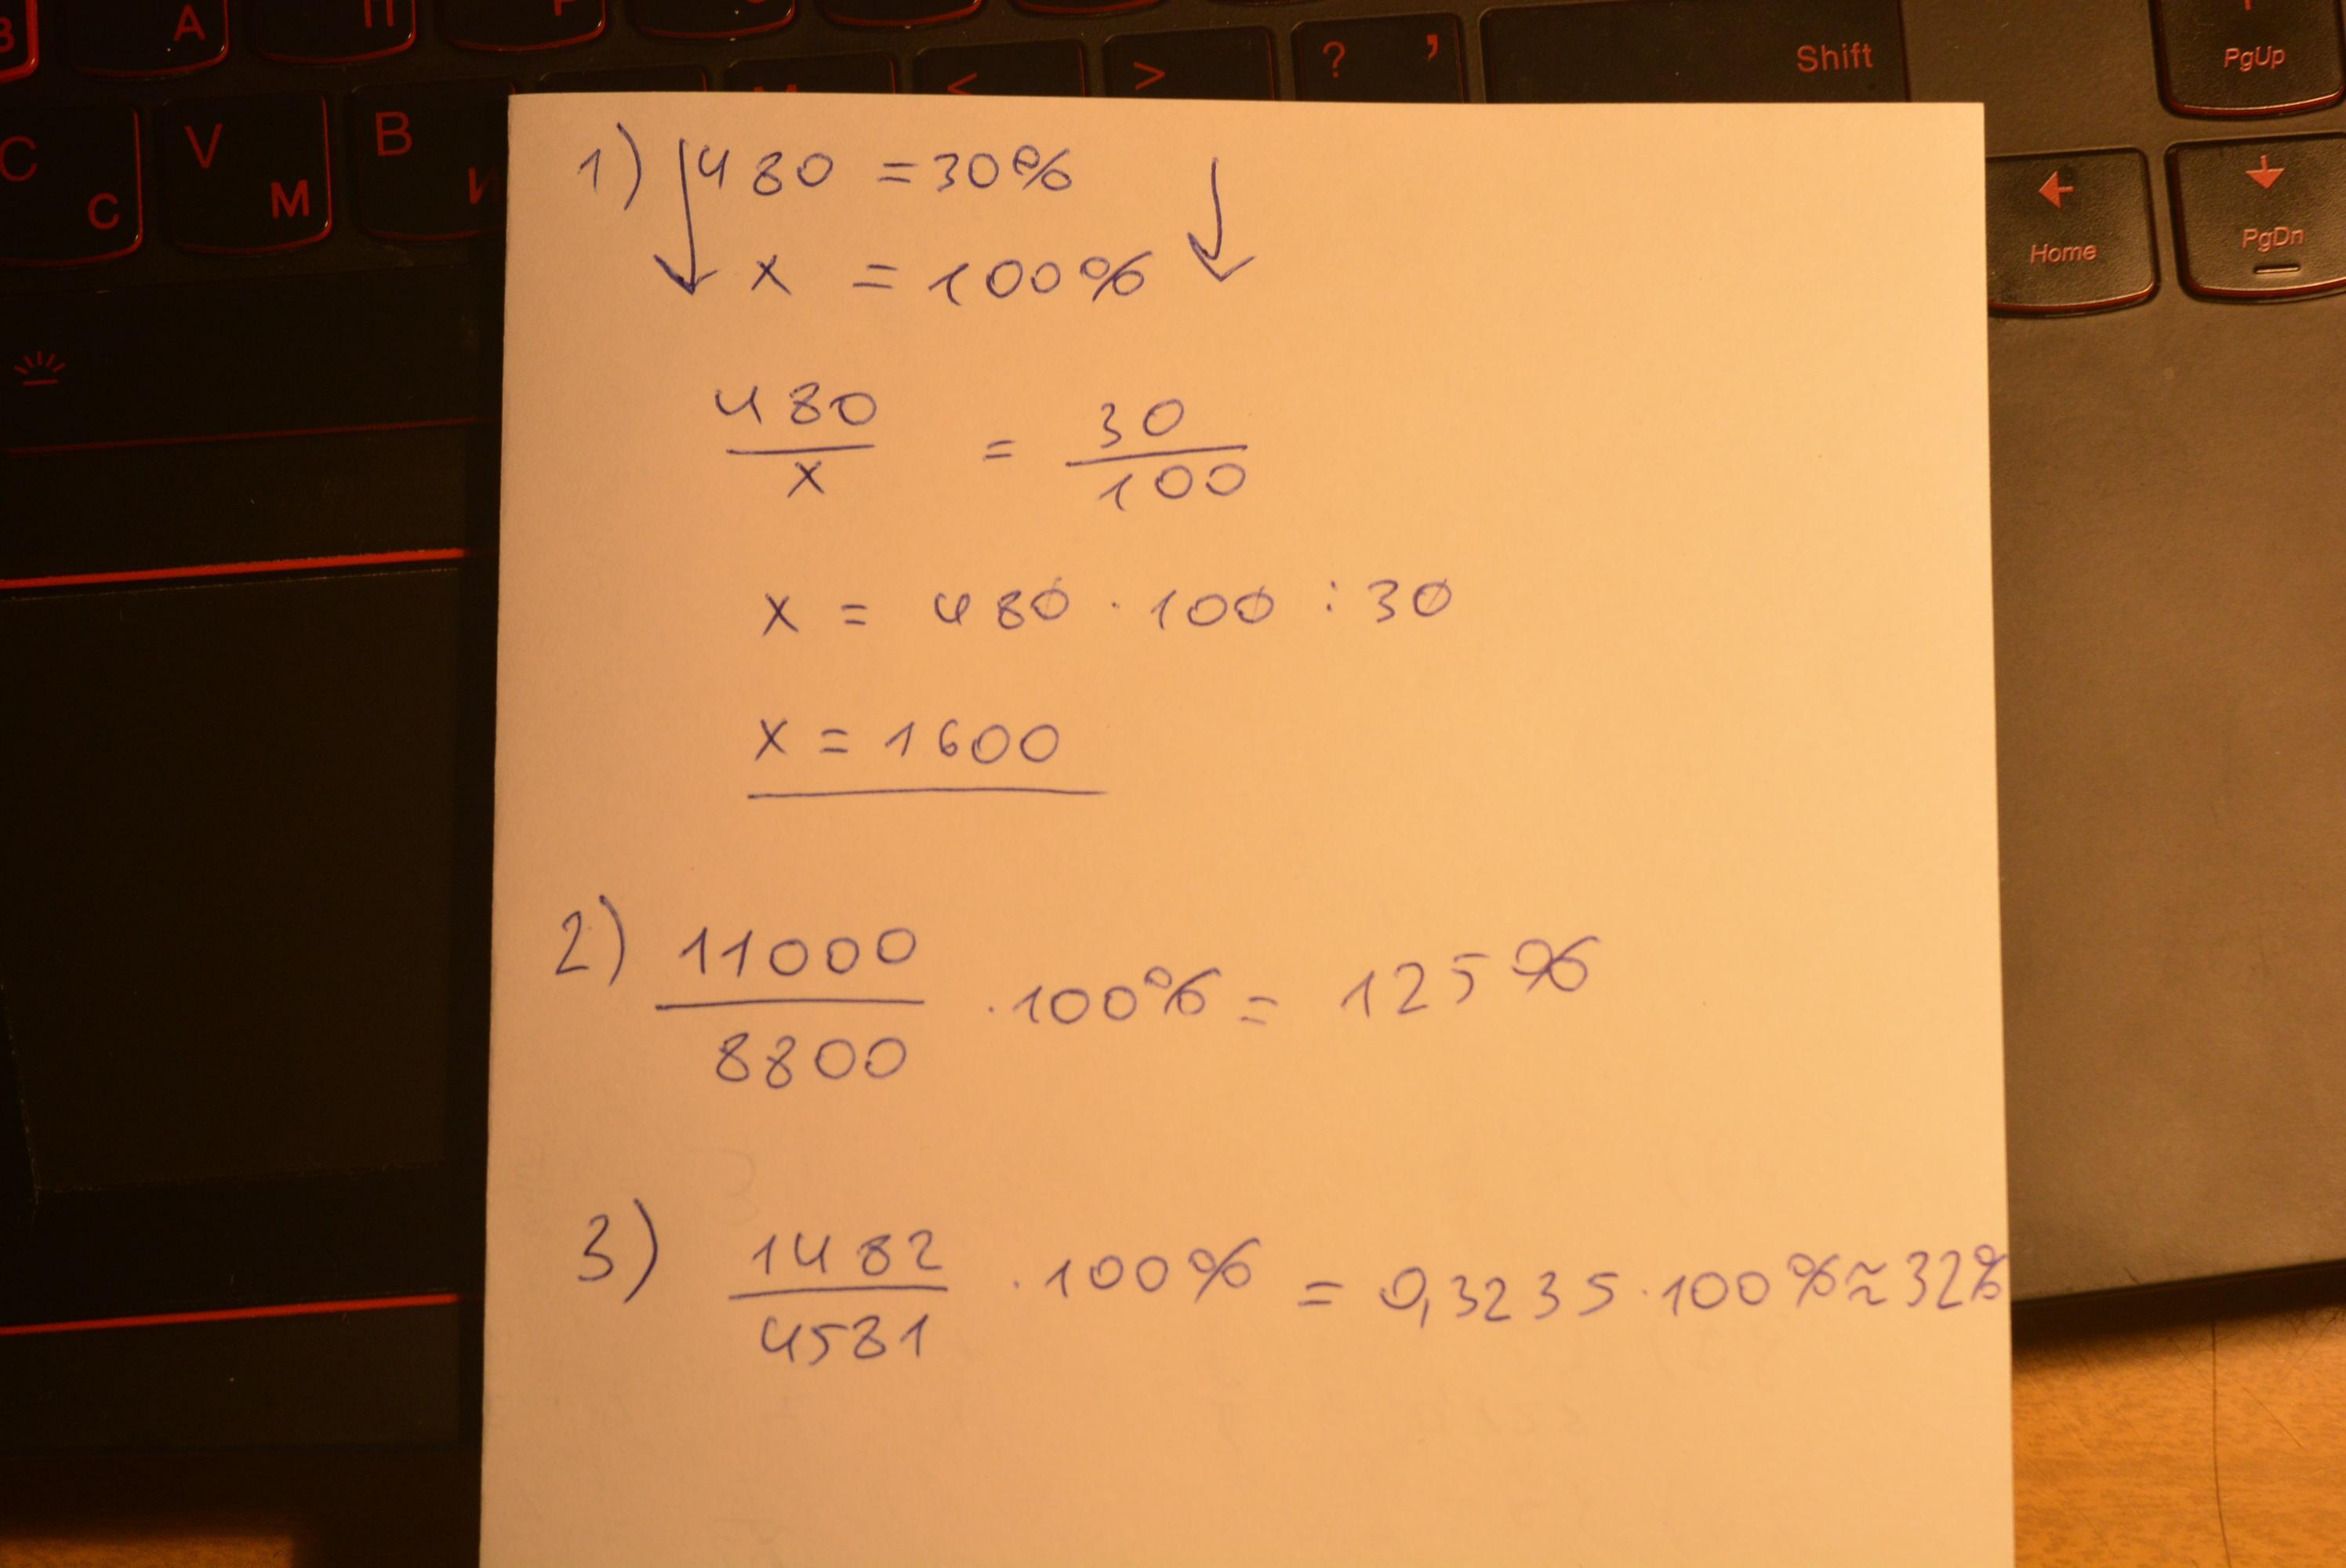 З А П Р
< > ? , Shift PgUp
C С V М B И
Home PgDn
1) 480 = 30%
x = 100%
480/x = 30/100
x = 480 · 100 : 30
x = 1600
2) 11000/8800 · 100% = 125%
3) 1482/4581 · 100% = 0,3235 · 100% ≈ 32%